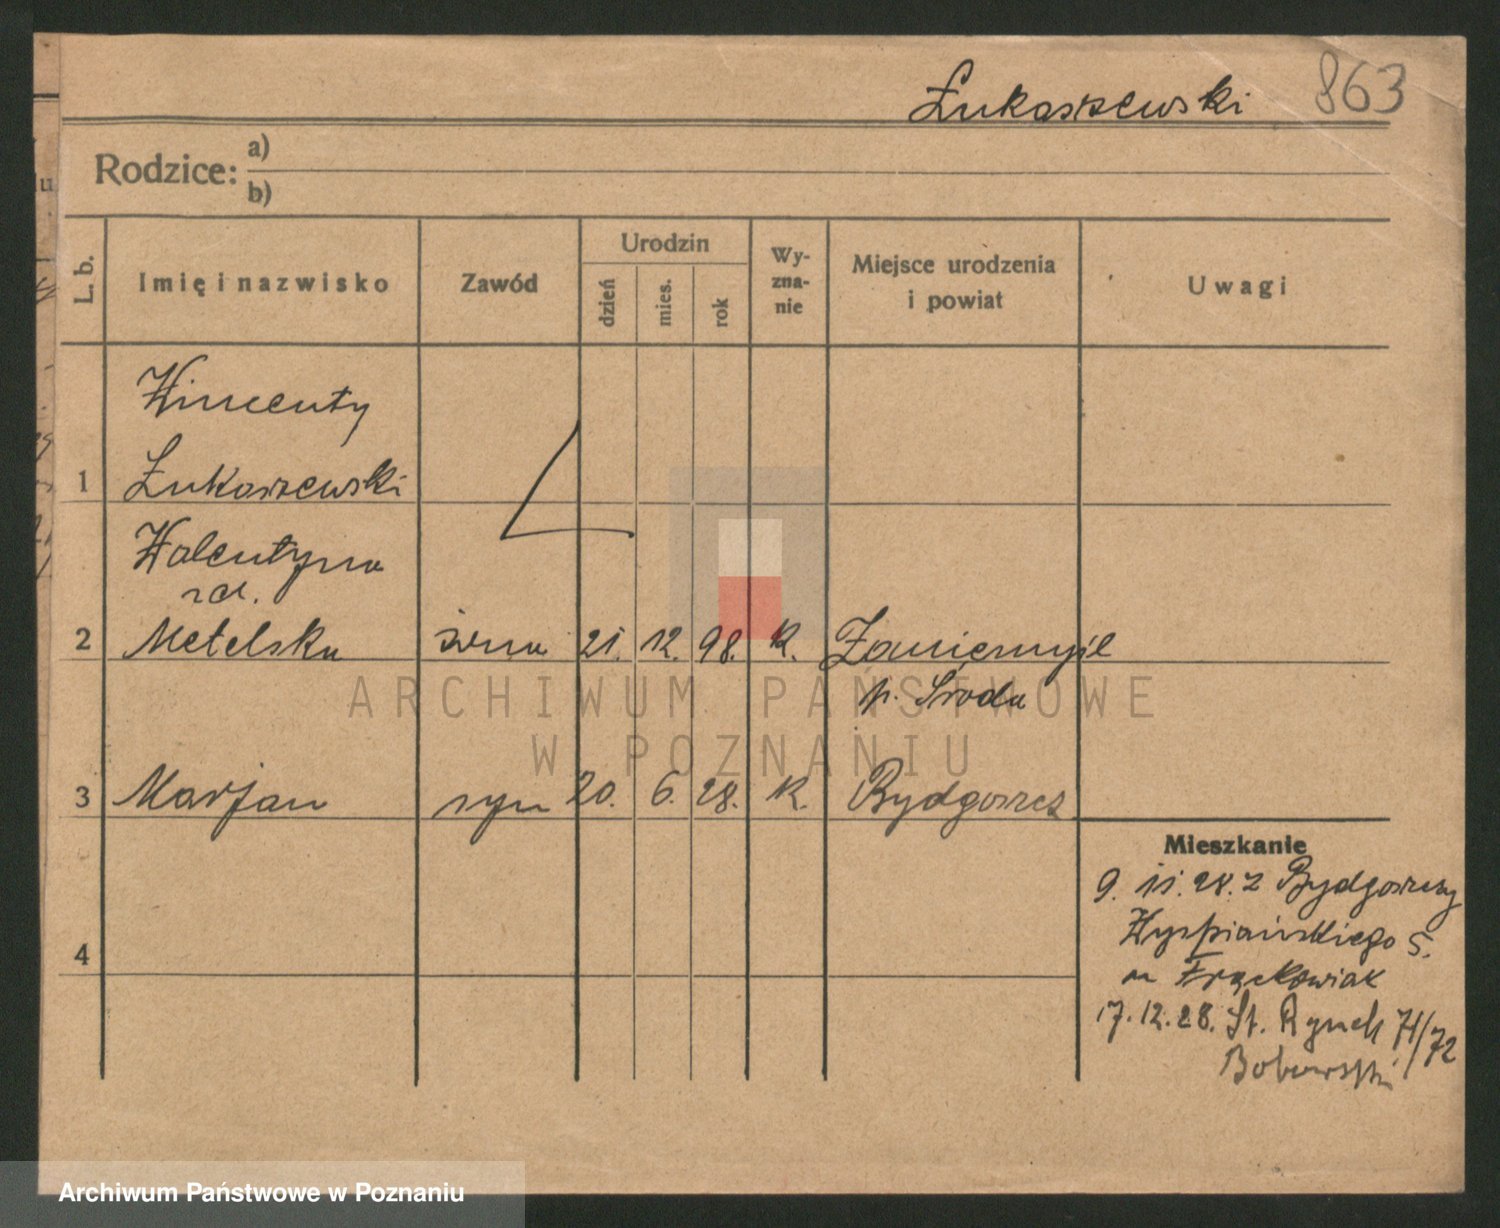 Łukaszewski 863
Rodzice: a)
b)
L. b.
Imię i nazwisko
Zawód
Urodzin
dzień
mies.
rok
Wy-
zna-
nie
Miejsce urodzenia
i powiat
Uwagi
Wincenty
1 Łukaszewski
Walentyna
zd.
2 Metelska żona 21. 12. 98. k. Zaniemyśl
p. Środa
3 Marjan syn 20. 6. 28. k. Bydgoszcz
4
Mieszkanie
9. 11. 28. z Bydgoszczy
Wyspiańskiego 5.
u Frąckowiak
17.12.28. St. Rynek 71/72
Bobowski
ARCHIWUM PAŃSTWOWE
W POZNANIU
Archiwum Państwowe w Poznaniu